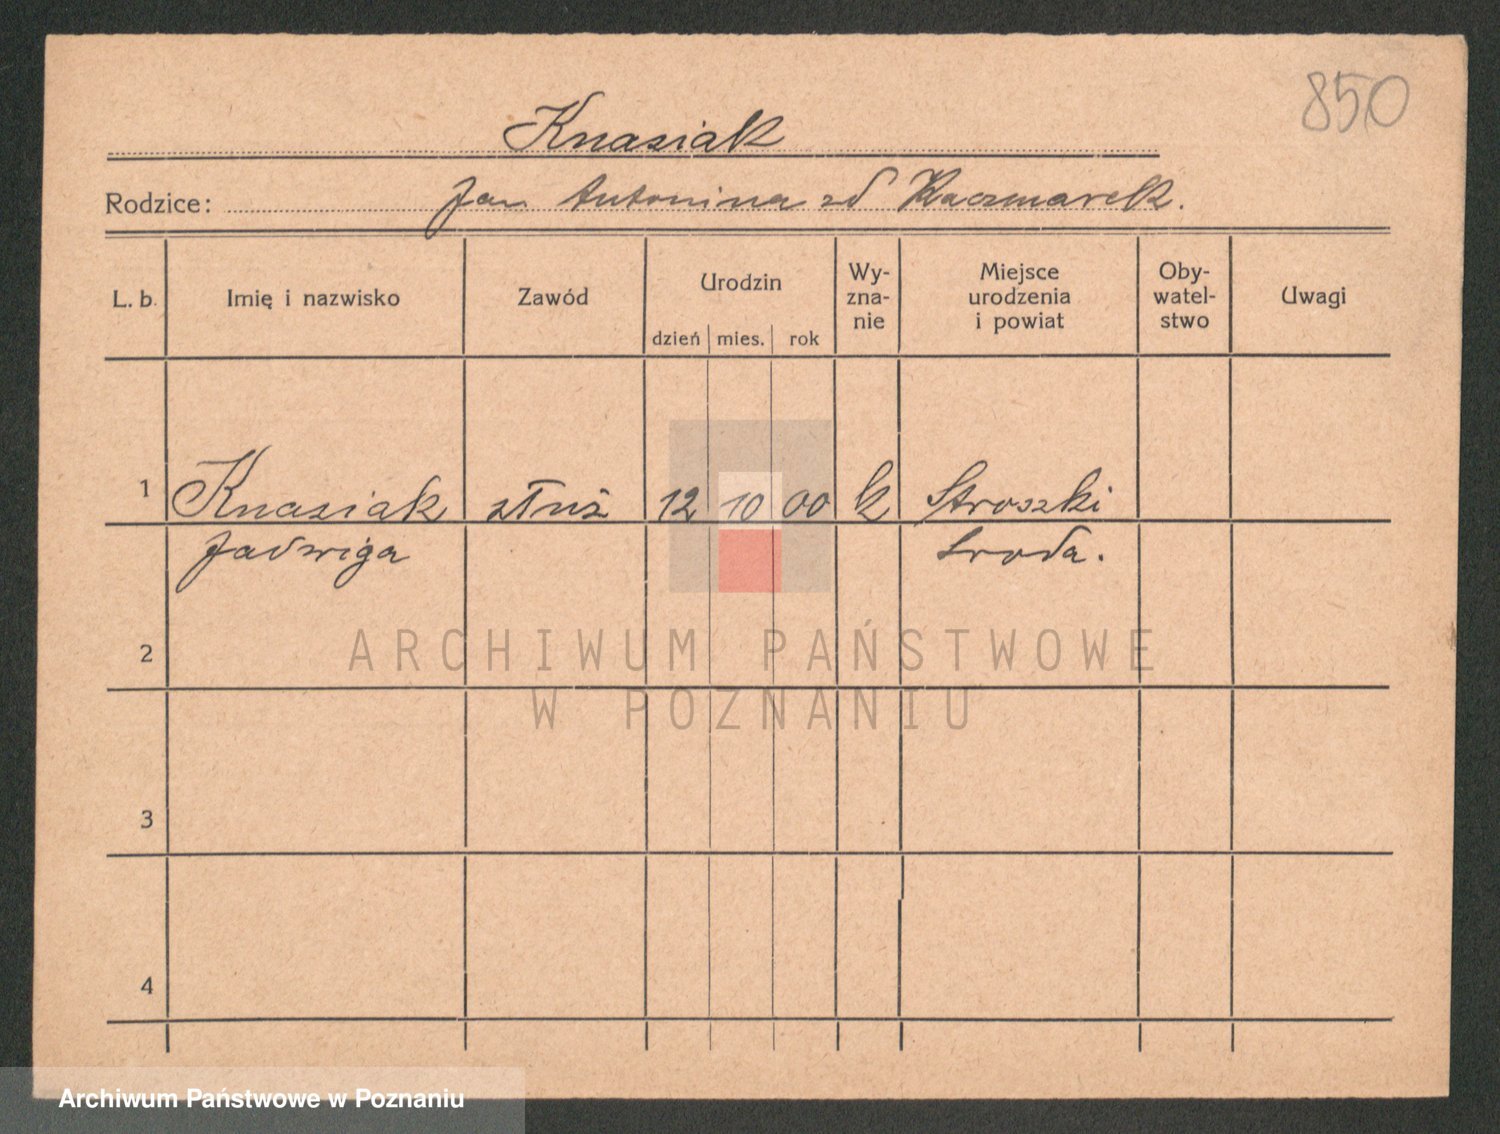 850
Knasiak
Rodzice: Jan Antonina zd Kaczmarek.
L. b. Imię i nazwisko Zawód Urodzin dzień mies. rok Wy-zna-nie Miejsce urodzenia i powiat Oby-watel-stwo Uwagi
1 Knasiak służ 12 10 00 k Stroszki
Jadwiga Sroda.
2
ARCHIWUM PAŃSTWOWE
W POZNANIU
3
4
Archiwum Państwowe w Poznaniu